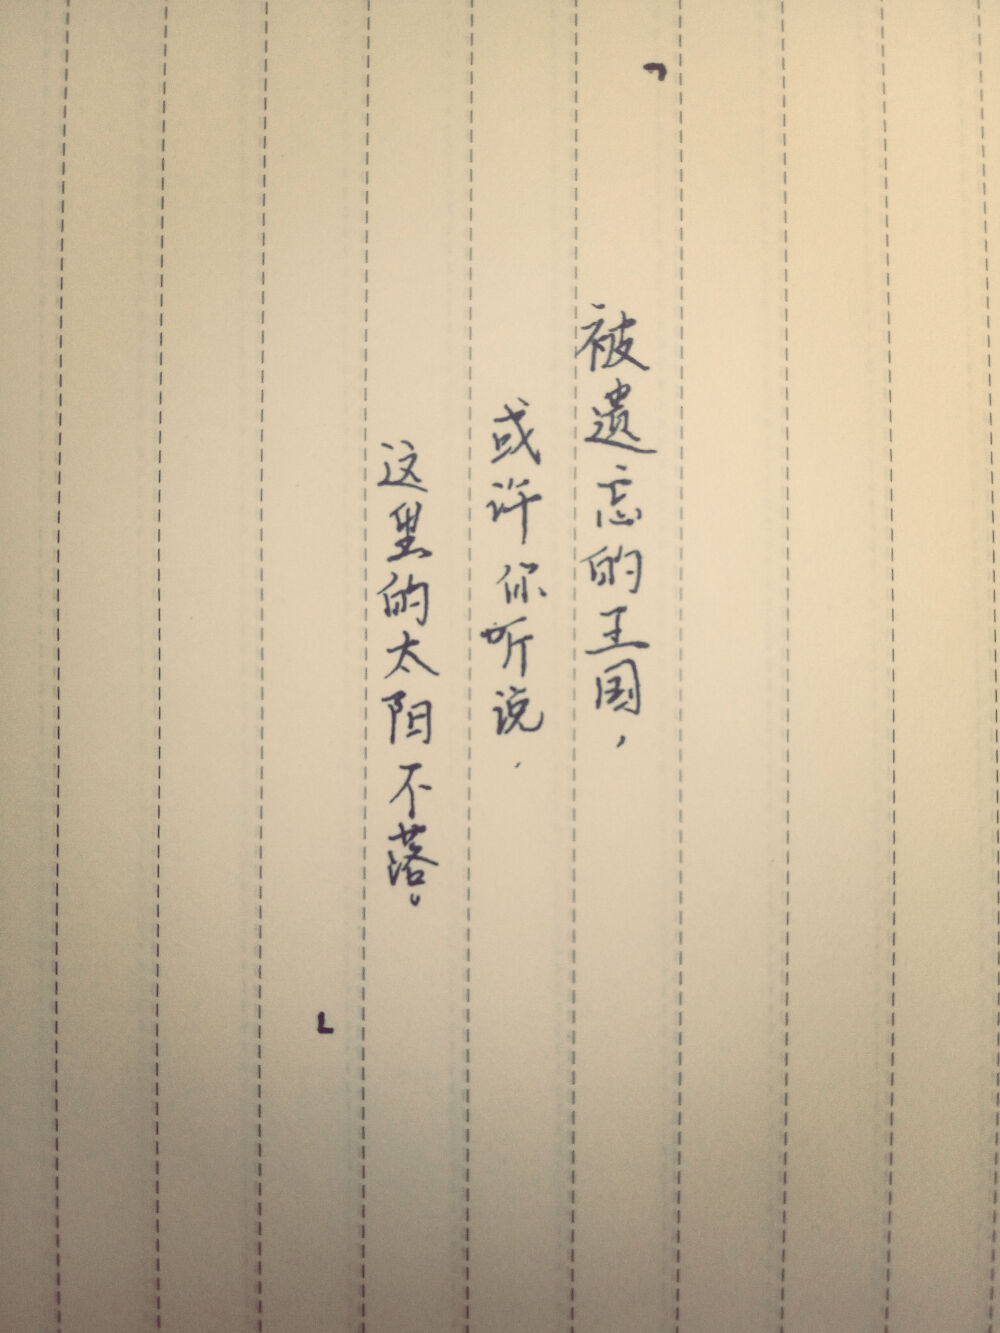 ﹁
被遗忘的王国，
或许你听说，
这里的太阳不落。
﹂